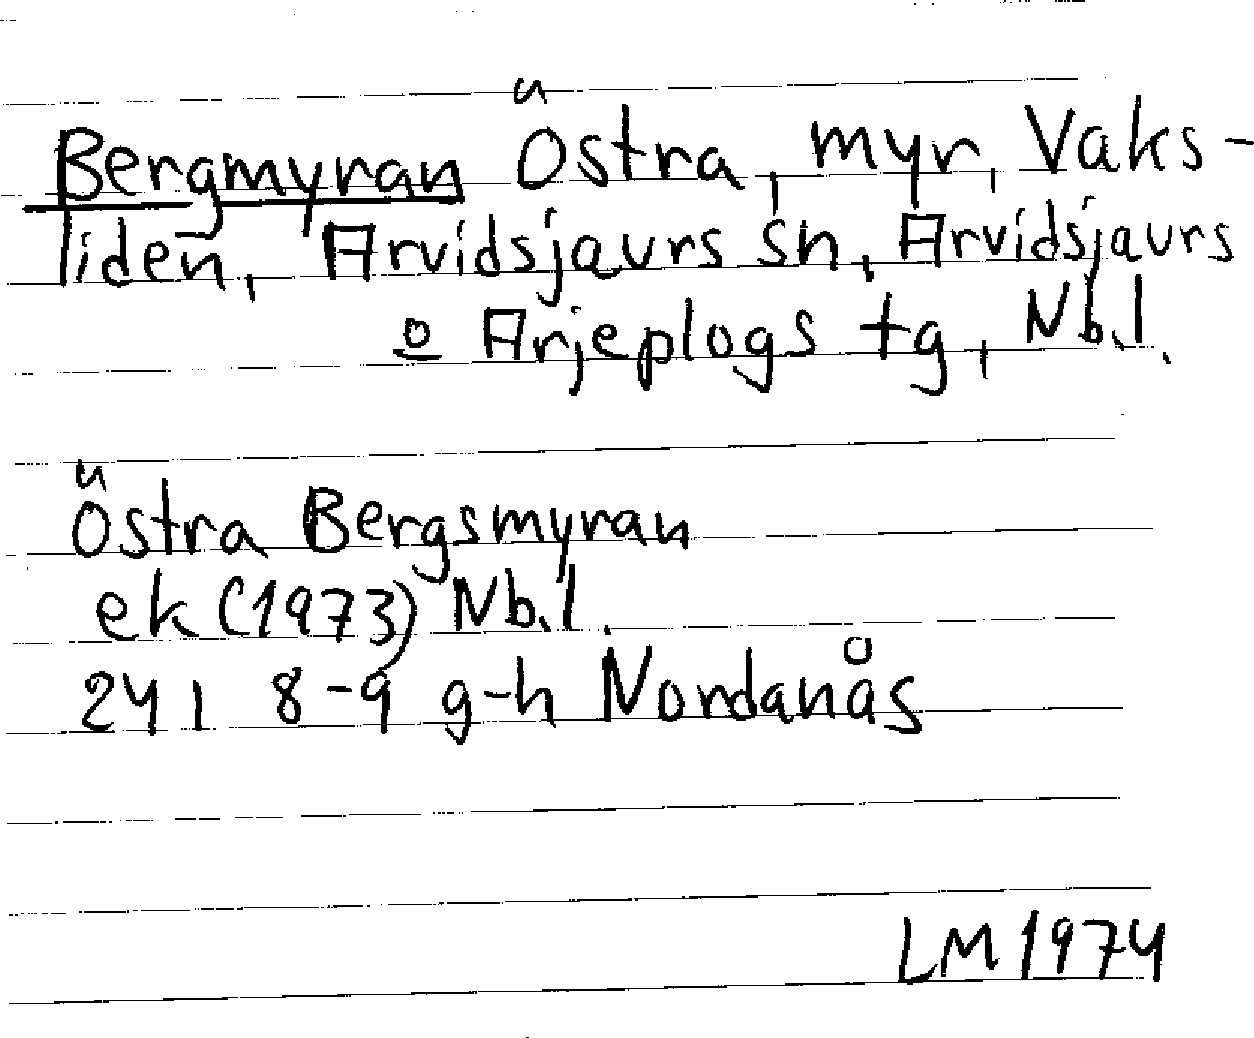 Bergmyran Östra, myr, Vaks-
liden, Arvidsjaurs sn, Arvidsjaurs
o Arjeplogs tg, Nb.l.
Östra Bergsmyran
ek (1973) Nb.l.
24 I 8-9 g-h Nordanås
LM 1974